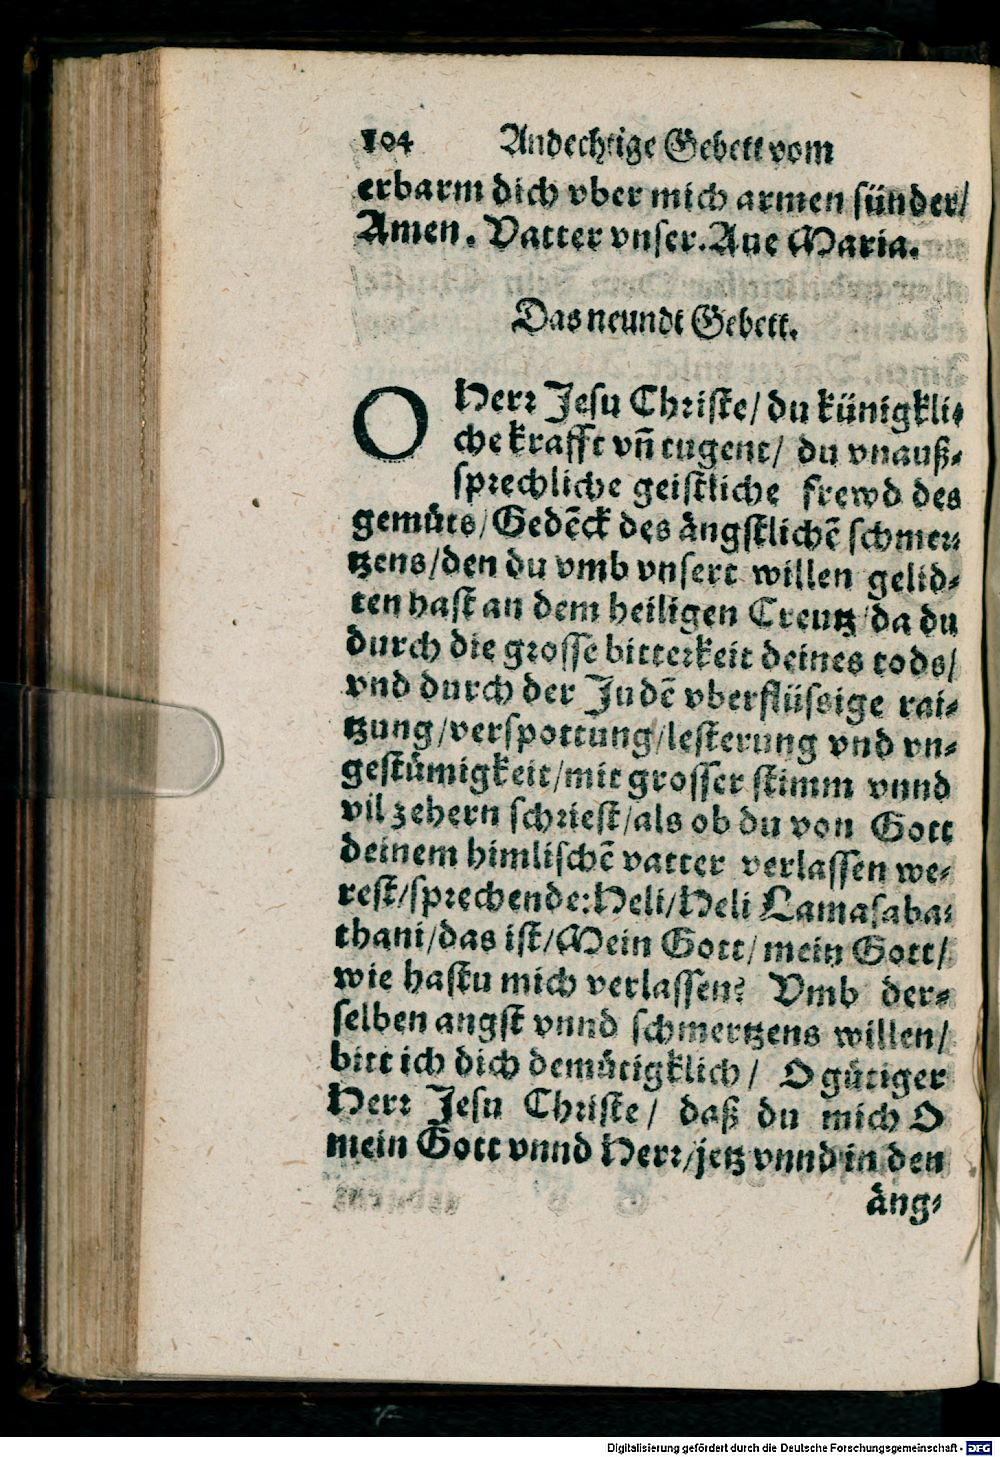 104 Andechtige Gebett vom
erbarm dich vber mich armen sünder/
Amen. Vatter vnser. Aue Maria.
Das neundt Gebett.
O Herr Jesu Christe/ du künigkli-
che krafft vñ tugent/ du vnauß-
sprechliche geistliche frewd des
gemuͤts/ Gedẽck des aͤngstlichẽ schmer-
tzens/ den du vmb vnsert willen gelid-
ten hast an dem heiligen Creutz/ da du
durch die grosse bitterkeit deines tods/
vnd durch der Judẽ vberflüssige rai-
tzung/ verspottung/ lesterung vnd vn-
gestuͤmigkeit/ mit grosser stimm vnnd
vil zehern schriest/ als ob du von Gott
deinem himlischẽ vatter verlassen we-
rest/ sprechende: Heli/ Heli Lamasaba-
thani/ das ist/ Mein Gott/ mein Gott/
wie hastu mich verlassen? Vmb der-
selben angst vnnd schmertzens willen/
bitt ich dich demuͤtigklich/ O guͤtiger
Herr Jesu Christe/ daß du mich O
mein Gott vnnd Herr/ jetz vnnd in den
aͤng-
Digitalisierung gefördert durch die Deutsche Forschungsgemeinschaft - DFG